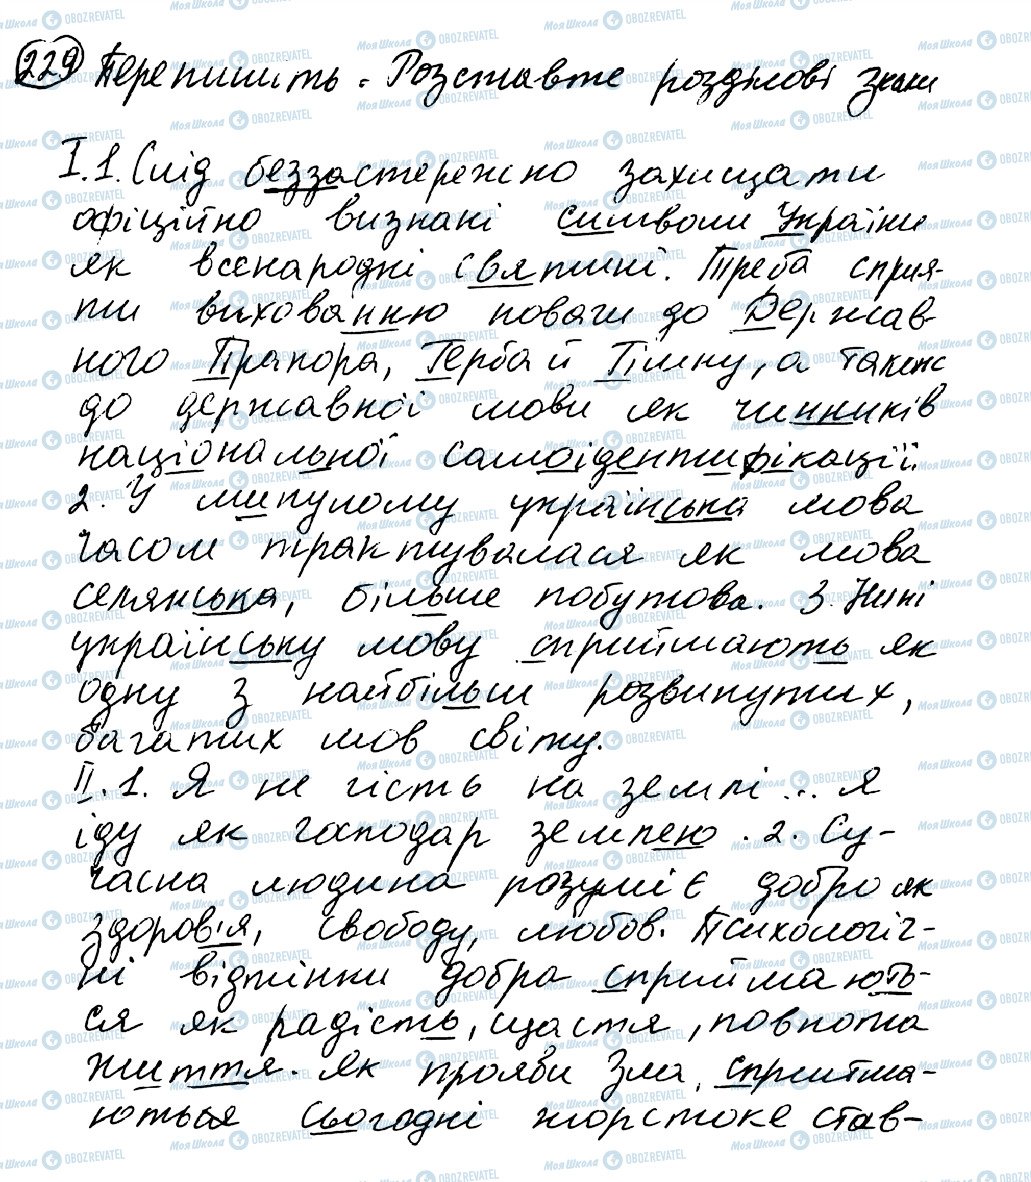 229 Перепишіть. Розставте розділові знаки
I.1. Слід беззастережно захищати
офіційно визнані символи України
як всенародні святині. Треба сприя-
ти вихованню поваги до Держав-
ного Прапора, Герба й Гімну, а також
до державної мови як чинників
національної самоідентифікації.
2. У минулому українська мова
часом трактувалася як мова
селянська, більше побутова. 3. Нині
українську мову сприймають як
одну з найбільш розвинутих,
багатих мов світу.
II.1. Я не гість на землі... Я
іду як господар землею. 2. Су-
часна людина розуміє добро як
здоров'я, свободу, любов. Психологіч-
ні відтінки добра сприймають-
ся як радість, щастя, повнота
життя. Як прояви зла, сприйма-
ються сьогодні жорстоке став-